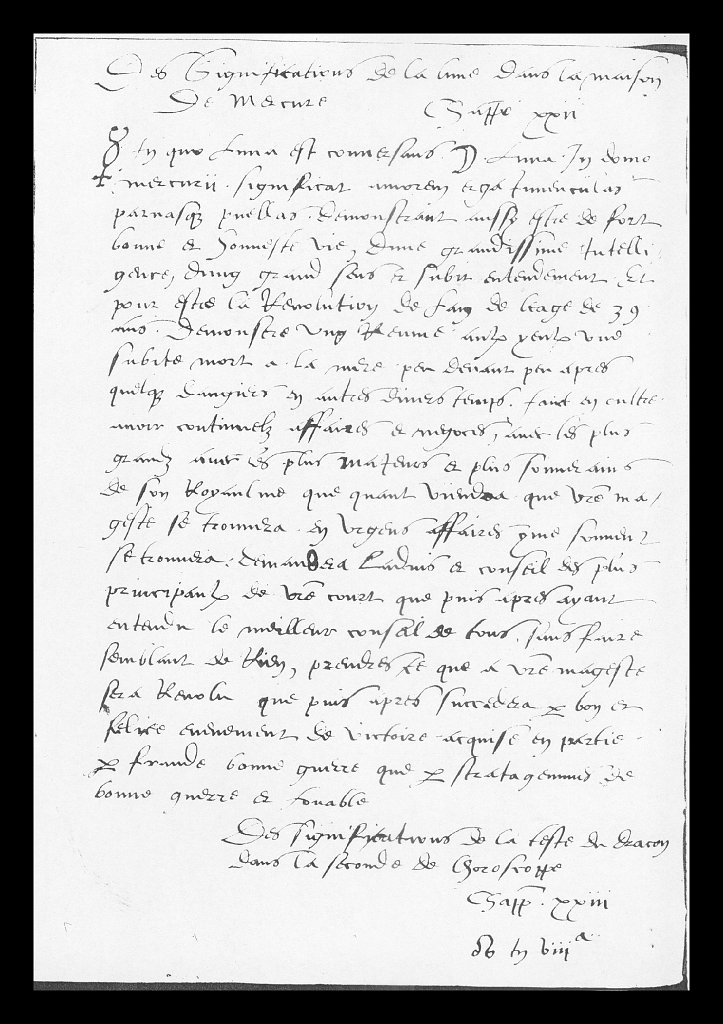 Des Significations de la lune dans la maison
De Mercure
Chappe xxii
In quo Luna est conversans. ☽ Luna In domo
mercurii significat amorem erga Iuvenculas
parvasq puellas. demonstrant aussy estre de fort
bonne et Honneste vie, dune grandissime Intelli
gence, dung grand sens et subit entendement. Et
pour estre la Revolution de lan de leage de 39
ans. Demonstre ung Reume aulx yeulx une
subite mort a la mere peu devant peu apres
quelq dangiers en autres divers temps. faict en oultre
avoir continuelz affaires et negoces, avec les plus
grandz avec les plus Majeurs et plus souverains
de son Royaulme que quant viendra que vre ma
geste se trouvera en urgens affaires come souvent
se trouvera, demandera Ladvis et conseil des plus
principaulx de vre court que puis apres ayant
entendu le meilleur conseil de tous, sans faire
semblant de Rien, prendres ce que a vre mageste
sera Revolu que puis apres succedera p bon et
felice evenement de victoire acquise en partie
p fraude bonne guerre que p stratagemmes de
bonne guerre et louable
Des significations de la teste du dracon
dans la seconde de lhoroscoppe
Chapp. xxiii
In viii a